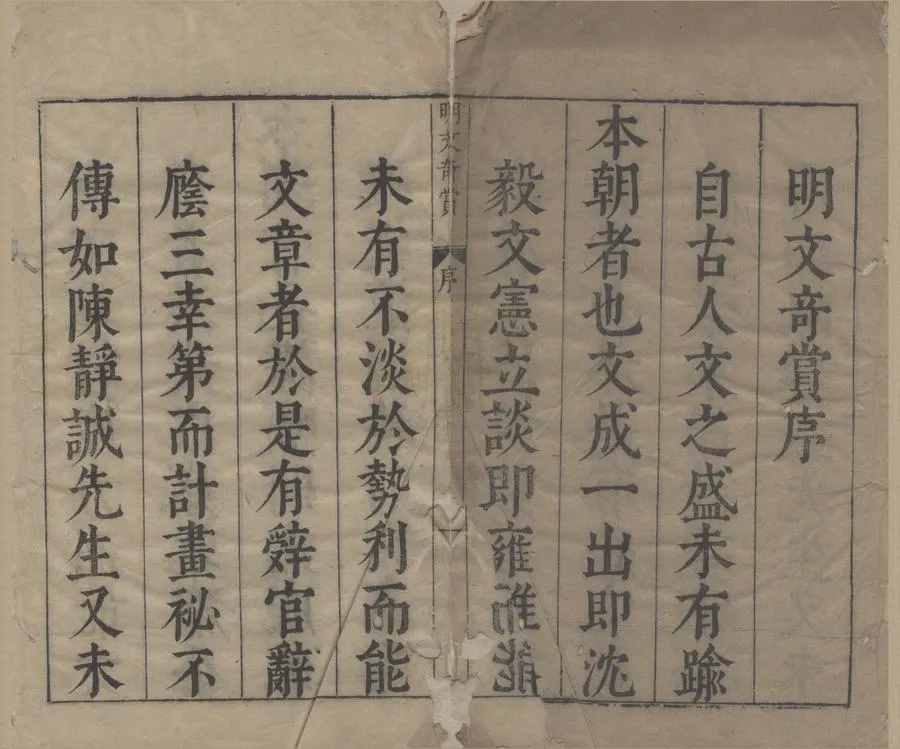 明文竒賞序
自古人文之盛未有踰
本朝者也文成一出即沈
毅文憲立談即雍
明文奇賞
序
未有不淡於勢利而能
文章者於是有辤官辭
廕三幸第而計畫祕不
傳如陳靜誠先生又未